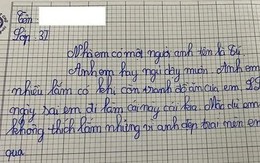 Tên
Lớp 3
Nhà em có một người anh tên là Tú
Anh em hay ngủ dậy muộn. Anh em
nhiều lắm có khi còn tranh đồ ăn của em
ngày sai em đi làm cái này cái kia. Mặc dù em
không thích lắm nhưng vì anh đẹp trai nên em
qua